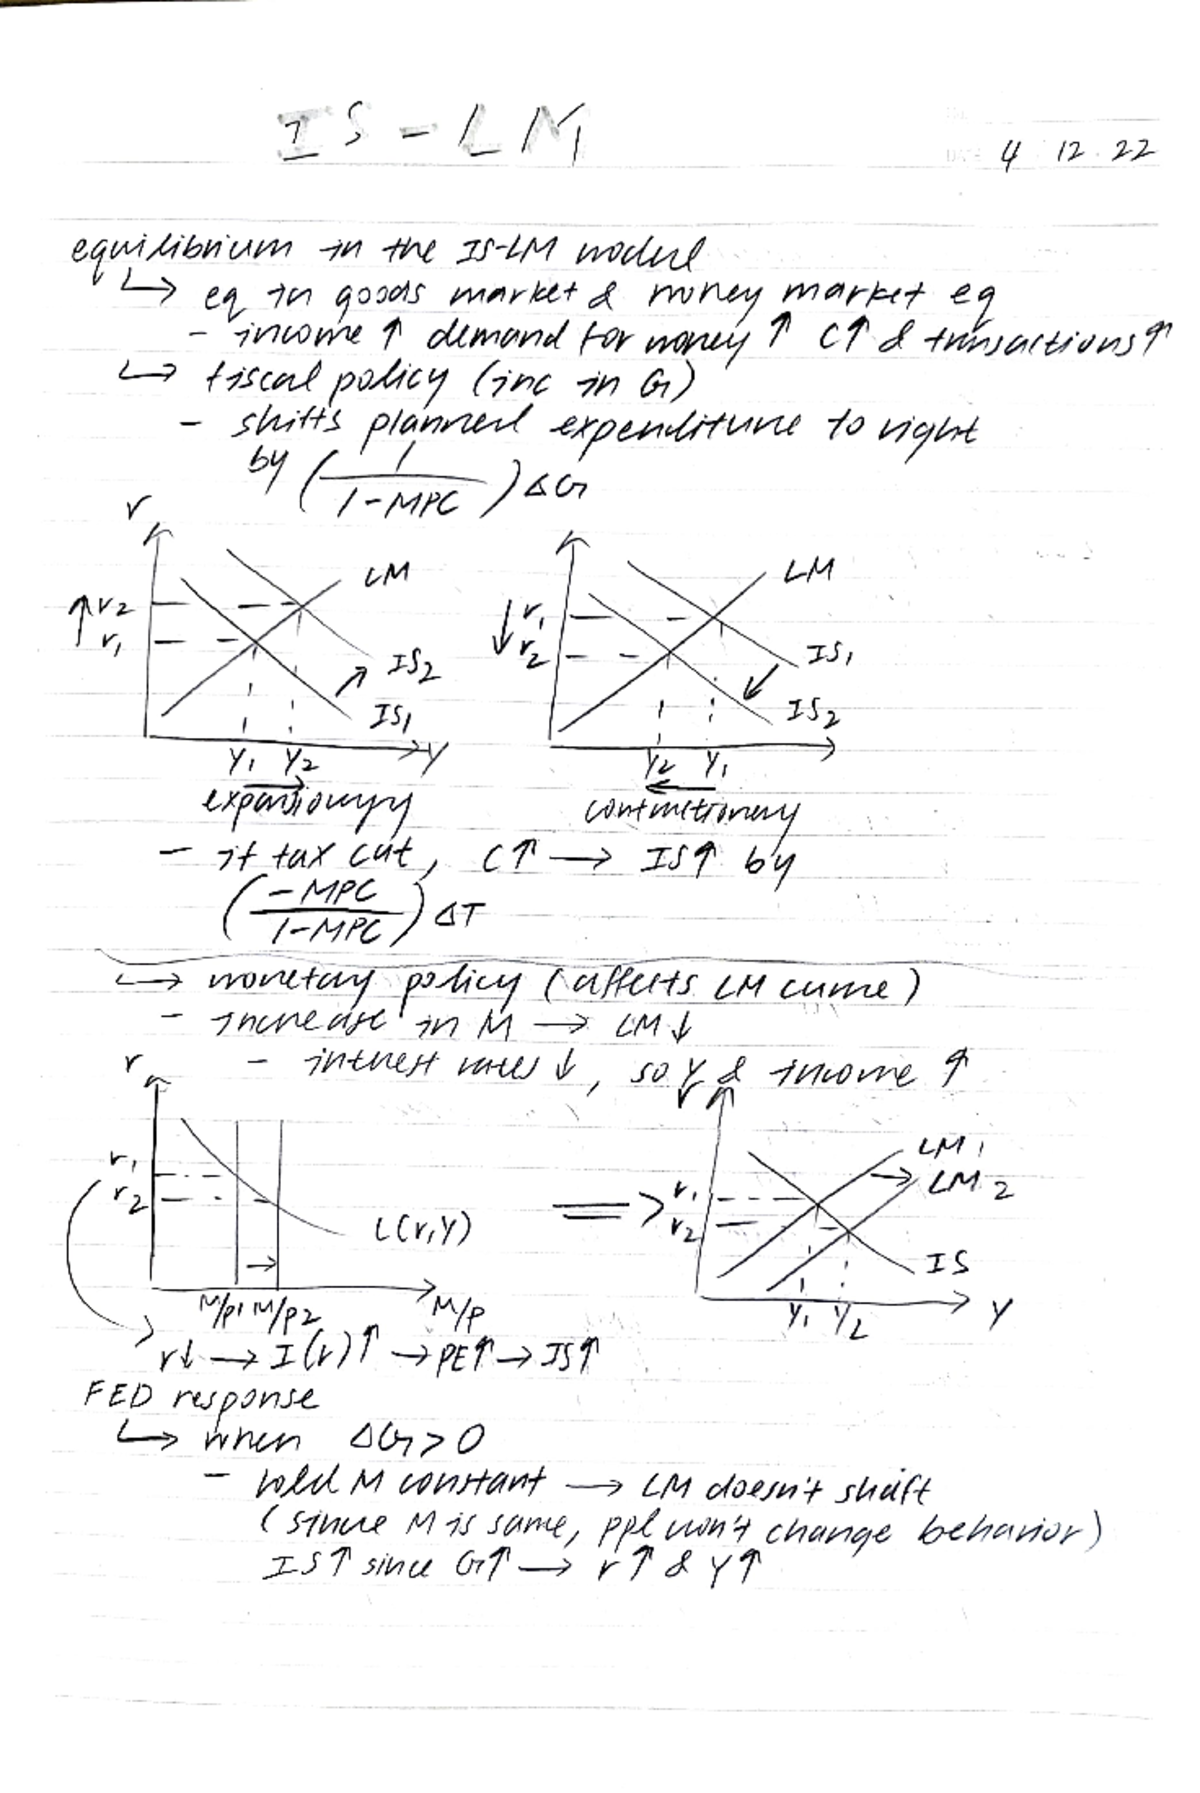 IS-LM
4 12 22
equilibrium in the IS-LM model
↳ eq in goods market & money market eq
- income ↑ demand for money ↑ C↑ & transactions↑
↳ fiscal policy (inc in G)
- shifts planned expenditure to right
by (1/(1-MPC)) ΔG
r
LM
↑ r2
r1
IS2
IS1
Y1 Y2 Y
expansionary
LM
↓ r1
r2
IS1
IS2
Y2 Y1
contractionary
- if tax cut, C↑ → IS↑ by
(-MPC/(1-MPC)) ΔT
↳ monetary policy (affects LM curve)
- increase in M → LM↓
- interest rates ↓, so Y & income ↑
r
r1
r2
L(r,Y)
M/P1 M/P2 M/P
⇒
r
LM1
LM2
r1
r2
IS
Y1 Y2 Y
r↓ → I(r)↑ → PE↑ → IS↑
FED response
↳ when ΔG>0
- hold M constant → LM doesn't shift
(since M is same, ppl won't change behavior)
IS↑ since G↑ → r↑ & Y↑